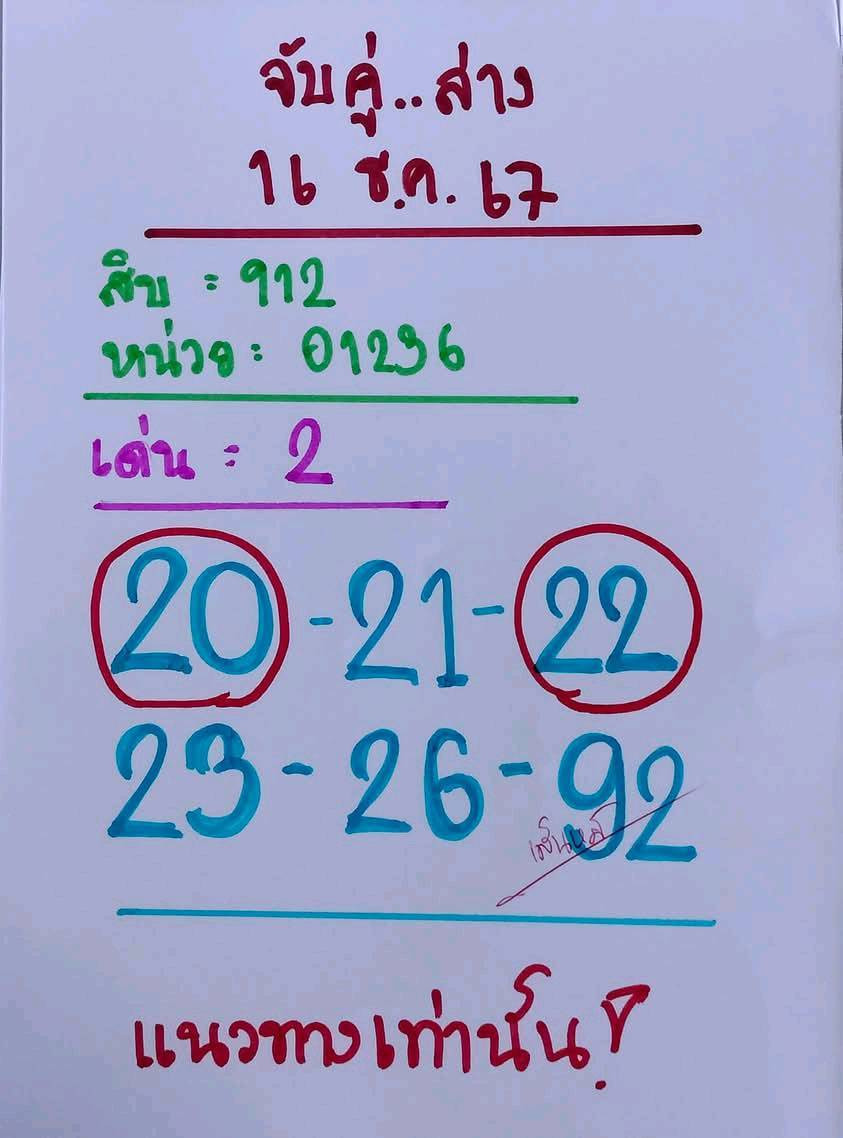 จับคู่..ล่าง
16 ธ.ค. 67
สิบ : 912
หน่วย : 01236
เด่น : 2
20 - 21 - 22
23 - 26 - 92
แนวทางเท่านั้น!